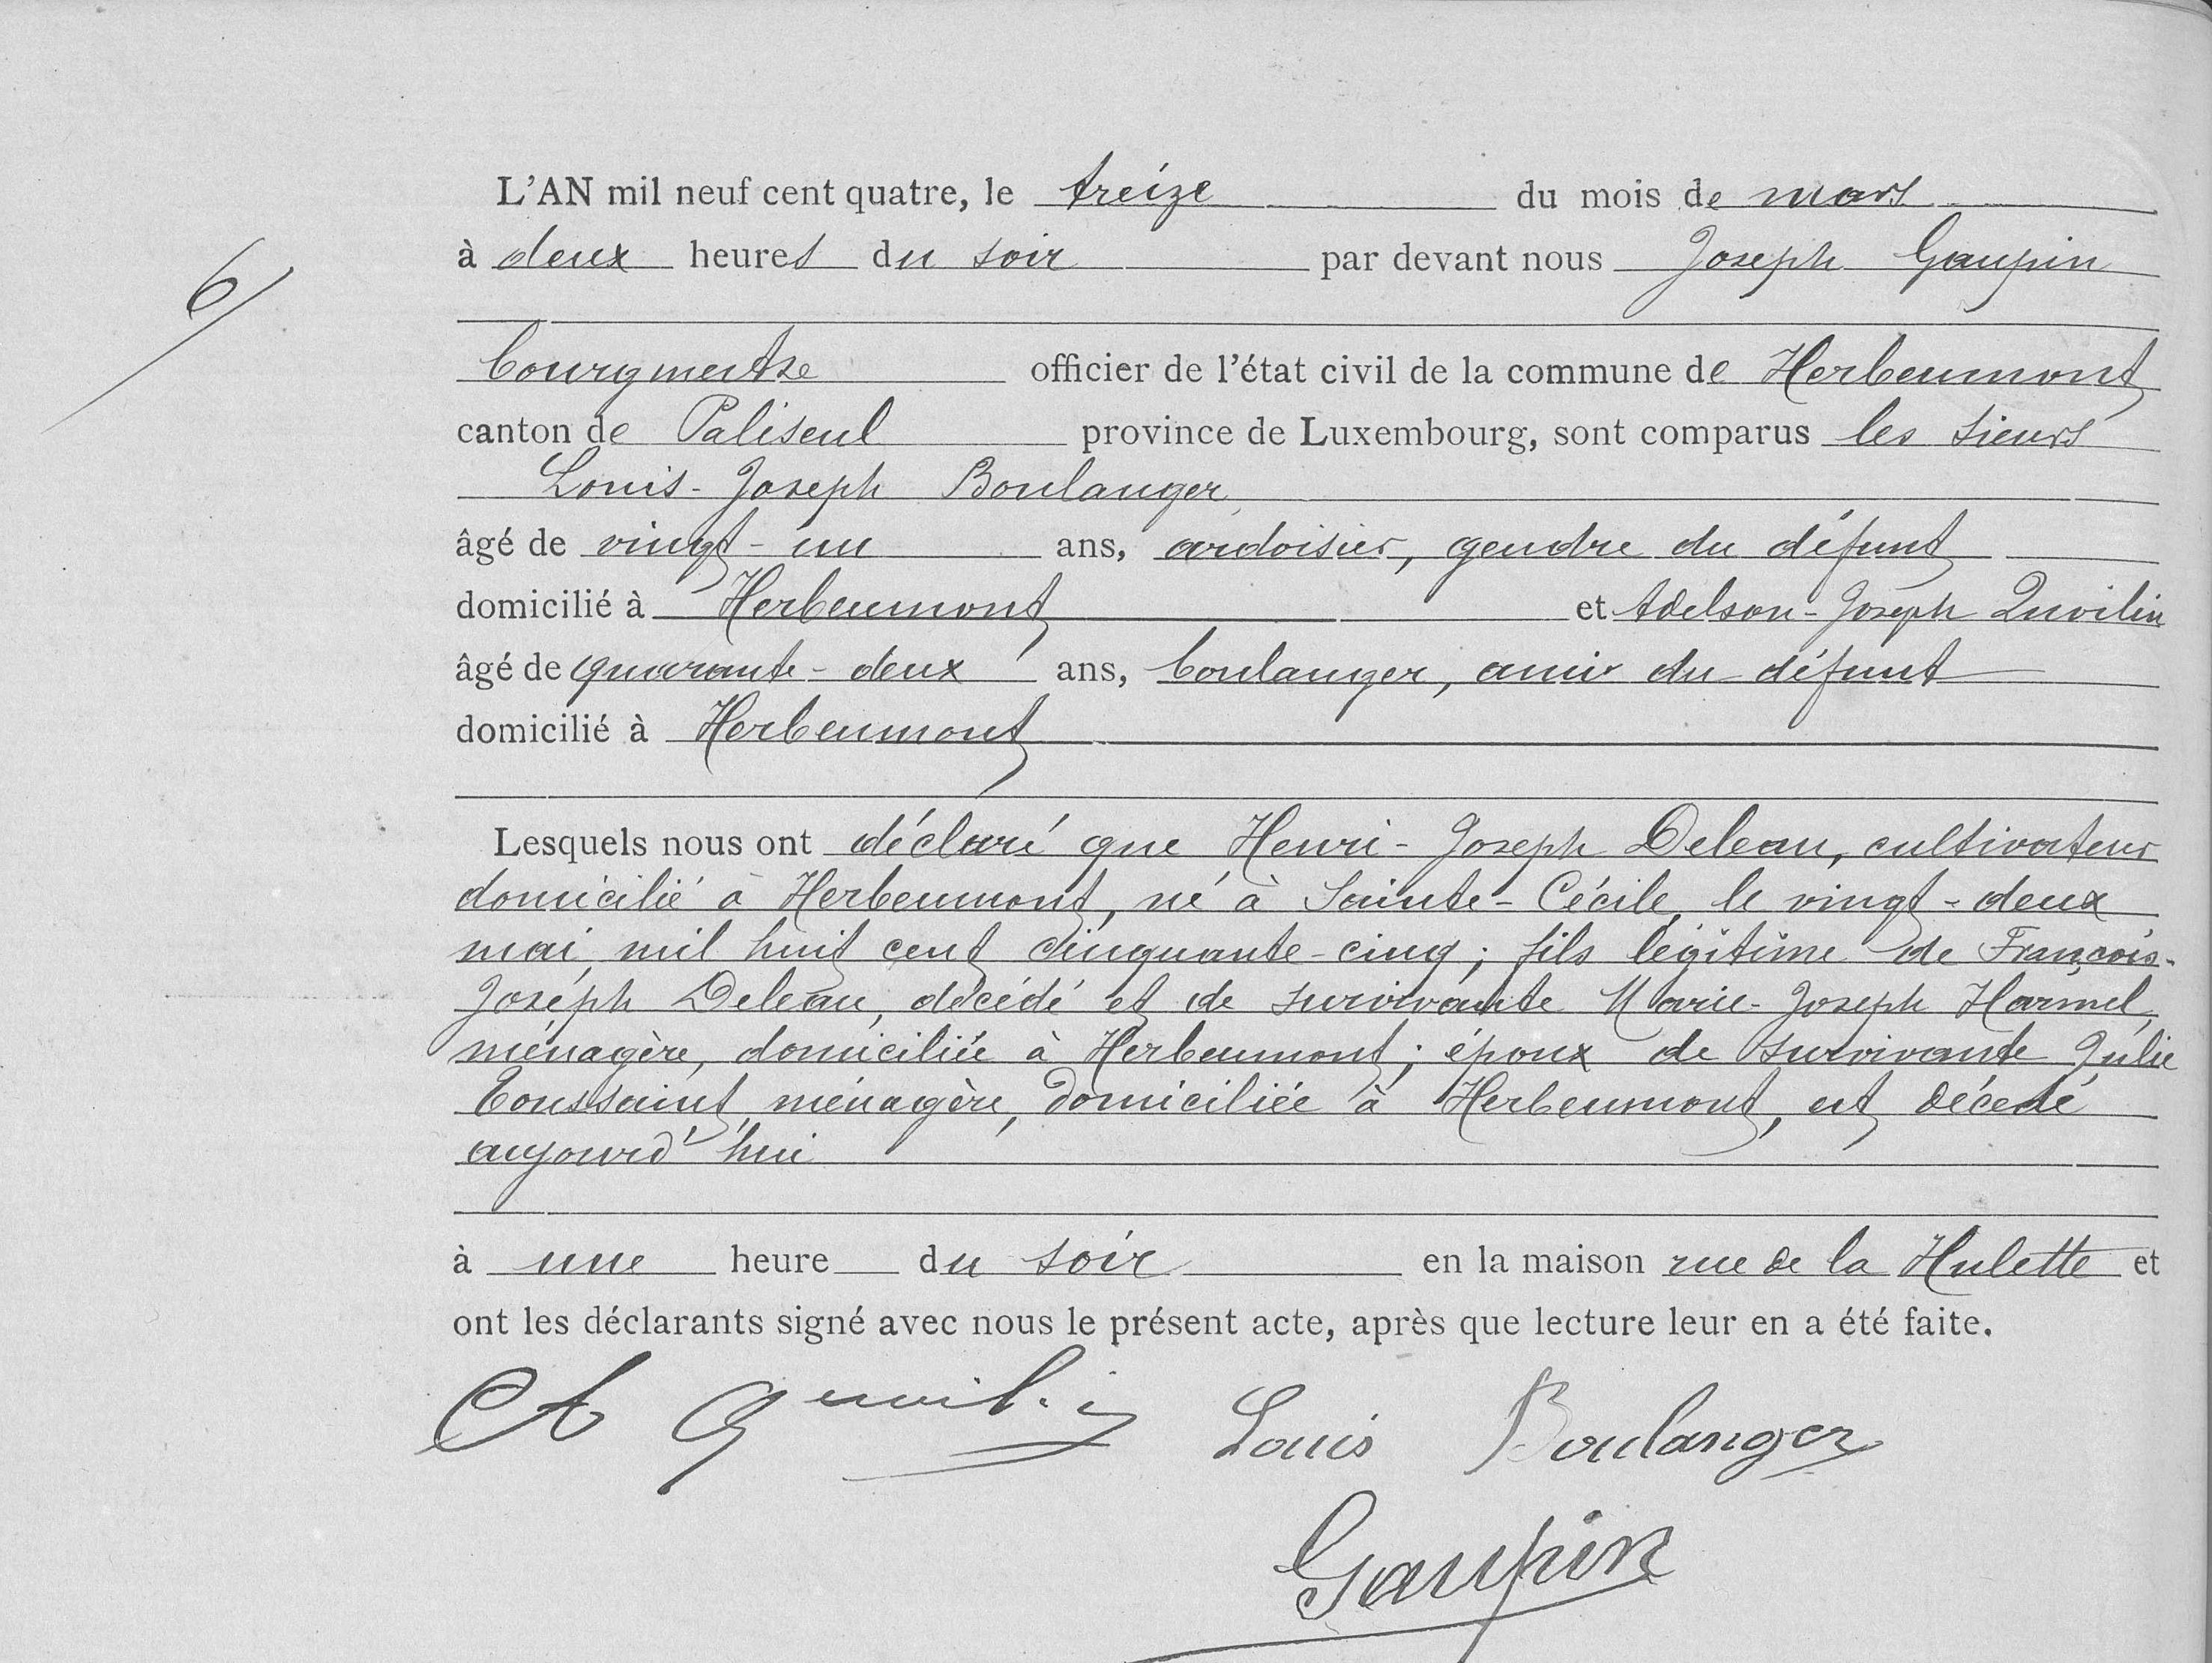 L'AN mil neuf cent quatre, le treize du mois de mars
à deux heures du soir par devant nous Joseph Gaupin
6/
bourgmestre officier de l'état civil de la commune de Herbeumont
canton de Paliseul province de Luxembourg, sont comparus les sieurs
Louis-Joseph Boulanger,
âgé de vingt-un ans, ardoisier, gendre du défunt
domicilié à Herbeumont et Adelson-Joseph Quvilin
âgé de quarante-deux ans, boulanger, ami du défunt
domicilié à Herbeumont
Lesquels nous ont déclaré que Henri-Joseph Deleau, cultivateur
domicilié à Herbeumont, né à Sainte-Cécile, le vingt-deux
mai, mil huit cent cinquante-cinq; fils légitime de François-
Joseph Deleau, décédé et de survivante Marie-Joseph Harmel,
ménagère, domiciliée à Herbeumont; époux de survivante Julie
Toussaint, ménagère, domiciliée à Herbeumont, est décédé
aujourd'hui
à une heure du soir en la maison rue de la Hulette et
ont les déclarants signé avec nous le présent acte, après que lecture leur en a été faite.
A Quvilin Louis Boulanger
Gaupin